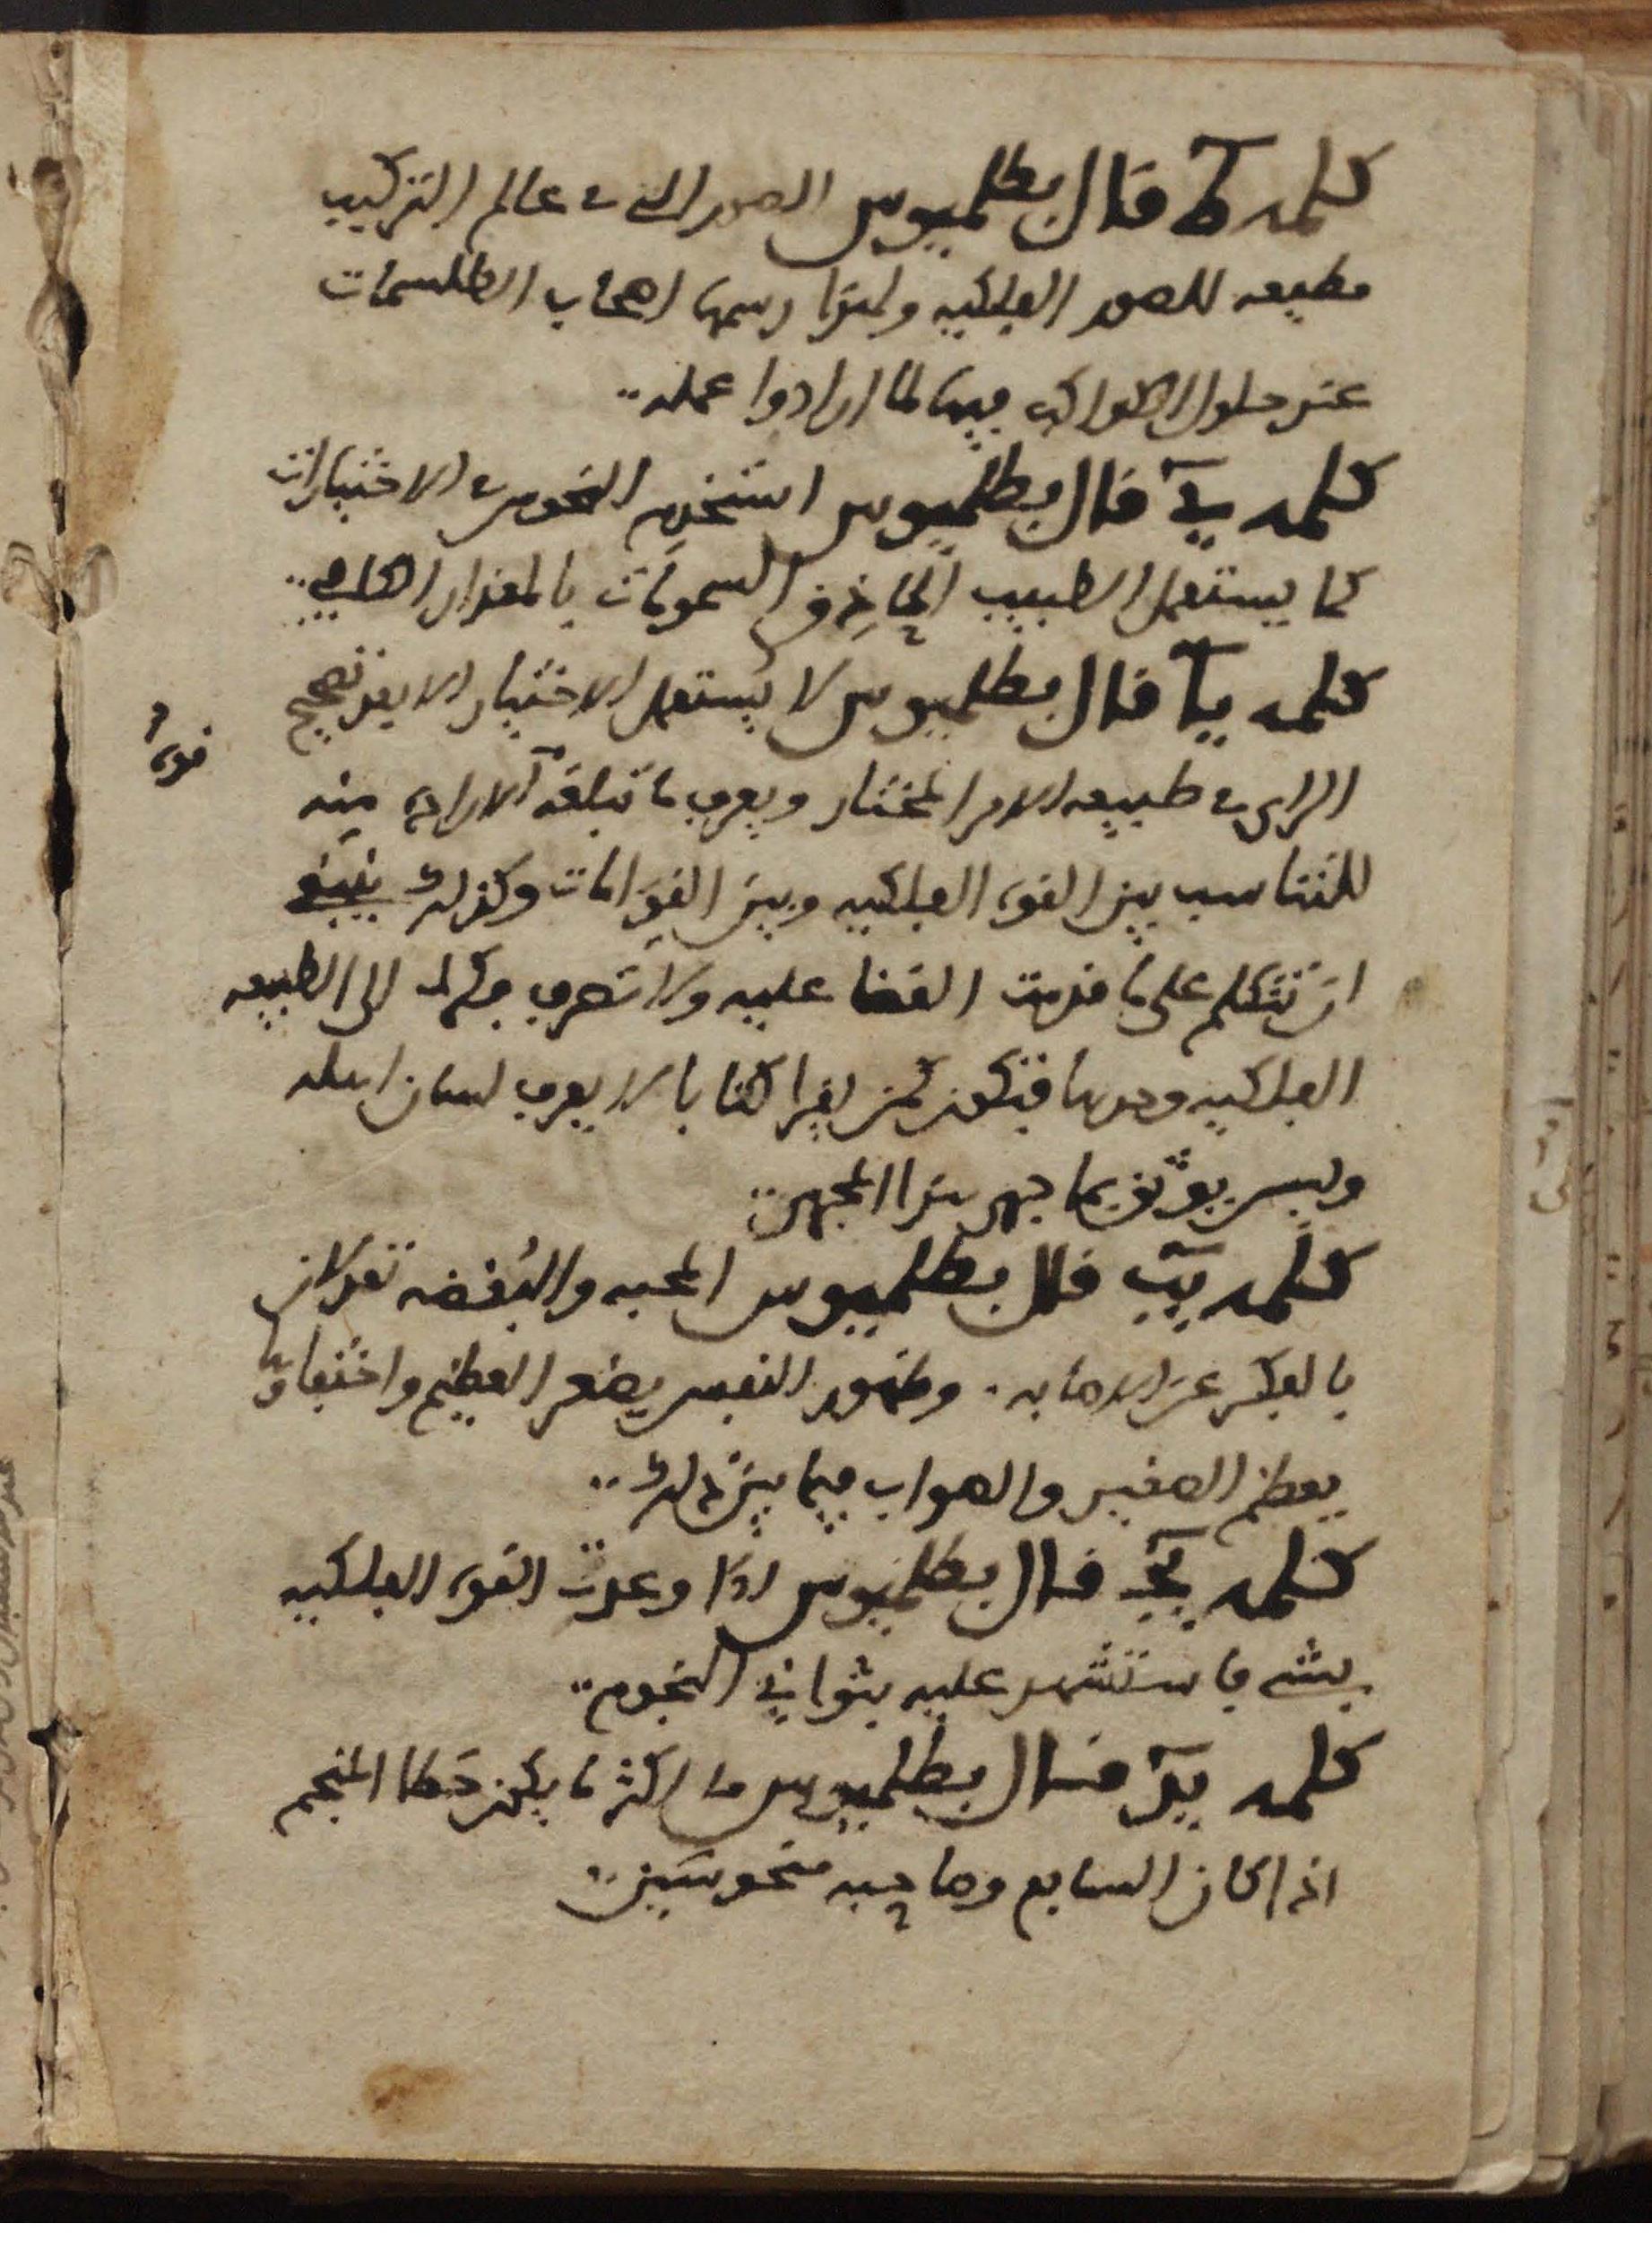 كلمه ط قال بطلميوس الصور التي في عالم التركيب
مطيعه للصور الفلكيه ولهذا رسمها اصحاب الطلسمات
عند حلول الكواكب فيها لما ارادوا عمله
كلمه ي قال بطلميوس استخدم النحوس في الاختيارات
كما يستعمل الطبيب الحاذق السمومات بالمقدار الكافي
كلمه يا قال بطلميوس لا يستعمل الاختيار الا بعد تصحيح
قوة
الراي في طبيعه الامر المختار ويعرف ما تبلغه الاراده منه
للتناسب بين القوى الفلكيه وبين القوامات وكذلك ينبغي
ان تتكلم على ما قدمت القضا عليه ولا تصرف فكرك الى الطبيعه
الفلكيه وحدها فتكون كمن يقرا كتابا لا يعرف لسان اهله
وليس يوثق بما جهر هذا المجهر
كلمه يب قال بطلميوس المحبه والبغضه تعدلان
بالفكر عن الاصابه . وظهور النفس يصغر العظيم واختفاؤها
يعظم الصغير والصواب فيما بين ذلك
كلمه يج قال بطلميوس اذا وعدت القوى الفلكيه
بشي فاستشهد عليه بثواني النجوم
كلمه يد قال بطلميوس ما اكثر ما يكون خطا المنجم
اذا كان السابع وصاحبه منحوسين